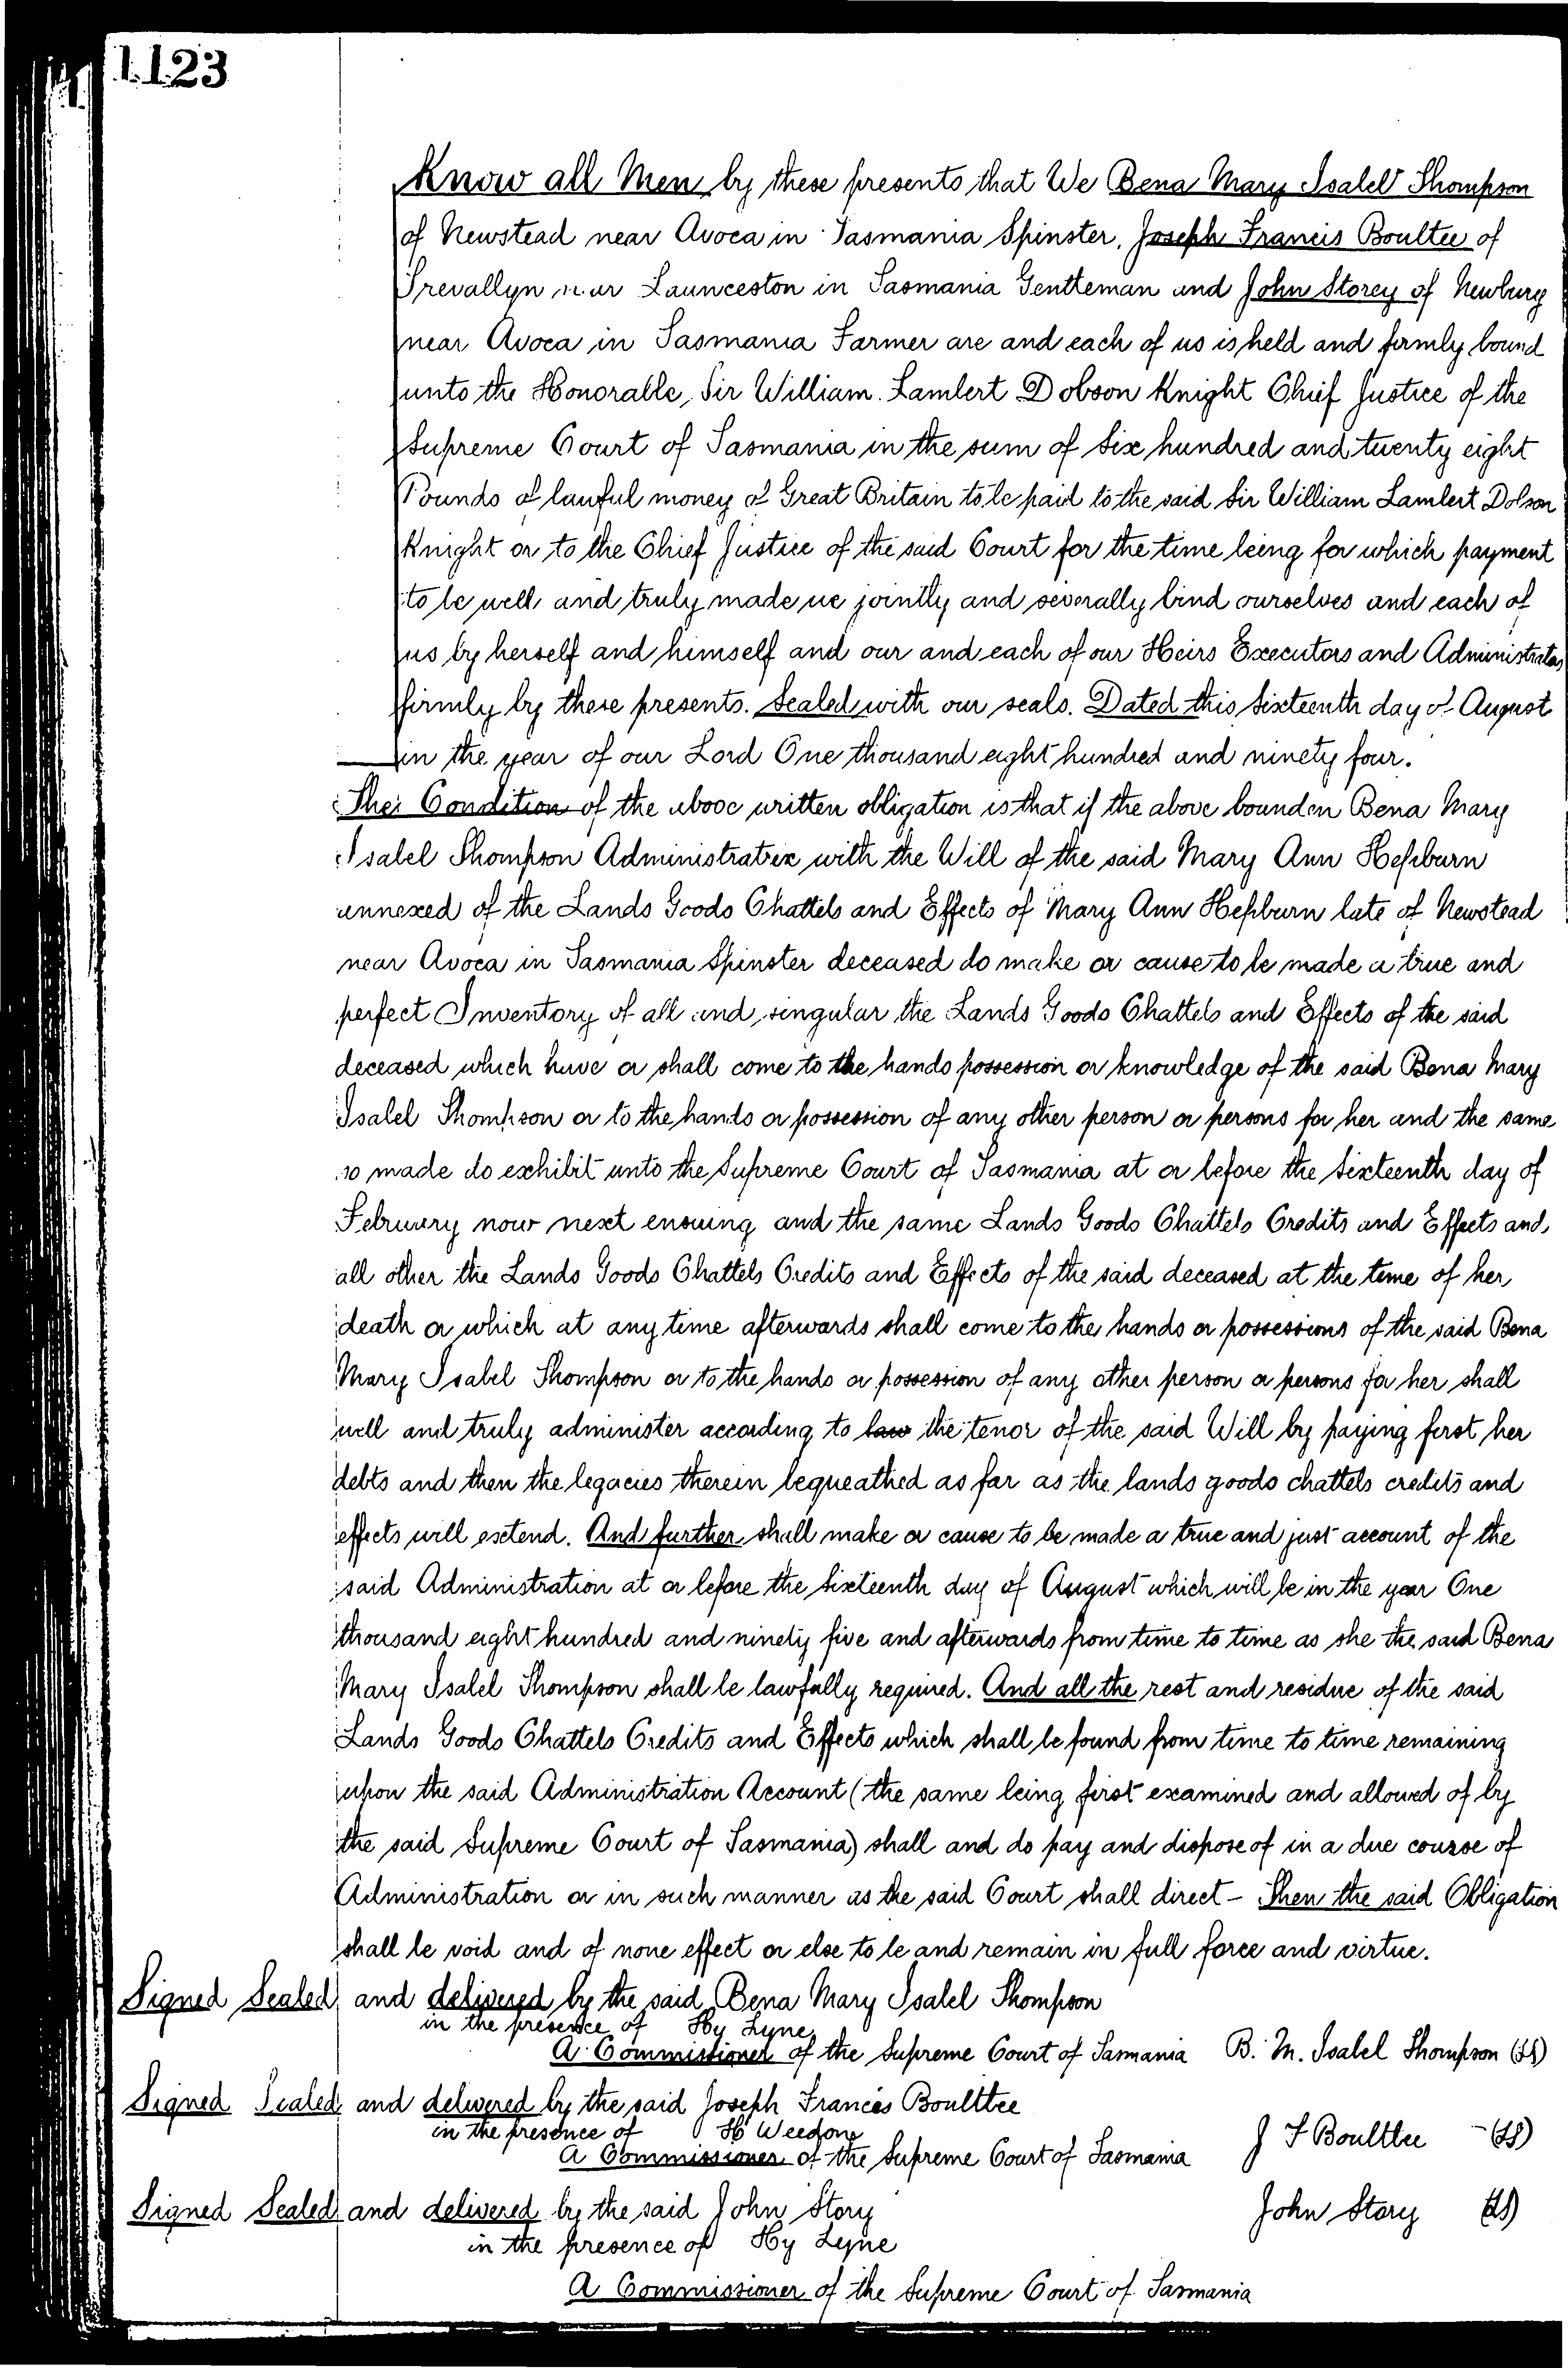 1123
Know all Men by these presents that We Bena Mary Isabel Thompson
of Newstead near Avoca in Tasmania Spinster, Joseph Francis Boultee of
Trevallyn near Launceston in Tasmania Gentleman and John Storey of Newburg
near Avoca in Tasmania Farmer are and each of us is held and firmly bound
unto the Honorable, Sir William Lambert Dobson Knight Chief Justice of the
Supreme Court of Tasmania in the sum of Six hundred and twenty eight
Pounds of lawful money of Great Britain to be paid to the said Sir William Lambert Dobson
Knight or to the Chief Justice of the said Court for the time being for which payment
to be well and truly made we jointly and severally bind ourselves and each of
us by herself and himself and our and each of our Heirs Executors and Administrators
firmly by these presents. Sealed with our seals. Dated this Sixteenth day of August
in the year of our Lord One thousand eight hundred and ninety four.
The Condition of the above written obligation is that if the above bounden Bena Mary
Isabel Thompson Administratrix with the Will of the said Mary Ann Hepburn
annexed of the Lands Goods Chattels and Effects of Mary Ann Hepburn late of Newstead
near Avoca in Tasmania Spinster deceased do make or cause to be made a true and
perfect Inventory of all and singular the Lands Goods Chattels and Effects of the said
deceased which have or shall come to the hands possession or knowledge of the said Bena Mary
Isabel Thompson or to the hands or possession of any other person or persons for her and the same
so made do exhibit unto the Supreme Court of Tasmania at or before the Sixteenth day of
February now next ensuing and the same Lands Goods Chattels Credits and Effects and
all other the Lands Goods Chattels Credits and Effects of the said deceased at the time of her
death or which at any time afterwards shall come to the hands or possessions of the said Bena
Mary Isabel Thompson or to the hands or possession of any other person or persons for her shall
well and truly administer according to law the tenor of the said Will by paying first her
debts and then the legacies therein bequeathed as far as the lands goods chattels credits and
effects will extend. And further shall make or cause to be made a true and just account of the
said Administration at or before the Sixteenth day of August which will be in the year One
thousand eight hundred and ninety five and afterwards from time to time as she the said Bena
Mary Isabel Thompson shall be lawfully required. And all the rest and residue of the said
Lands Goods Chattels Credits and Effects which shall be found from time to time remaining
upon the said Administration Account (the same being first examined and allowed of by
the said Supreme Court of Tasmania) shall and do pay and dispose of in a due course of
Administration or in such manner as the said Court shall direct - Then the said Obligation
shall be void and of none effect or else to be and remain in full force and virtue.
Signed Sealed and delivered by the said Bena Mary Isabel Thompson
in the presence of Hy Lyne
A Commissioner of the Supreme Court of Tasmania B. M. Isabel Thompson (LS)
Signed Sealed and delivered by the said Joseph Francis Boulttee
in the presence of H Weedon
A Commissioner of the Supreme Court of Tasmania J F Boulttee - (LS)
Signed Sealed and delivered by the said John Story John Story (LS)
in the presence of Hy Lyne
A Commissioner of the Supreme Court of Tasmania